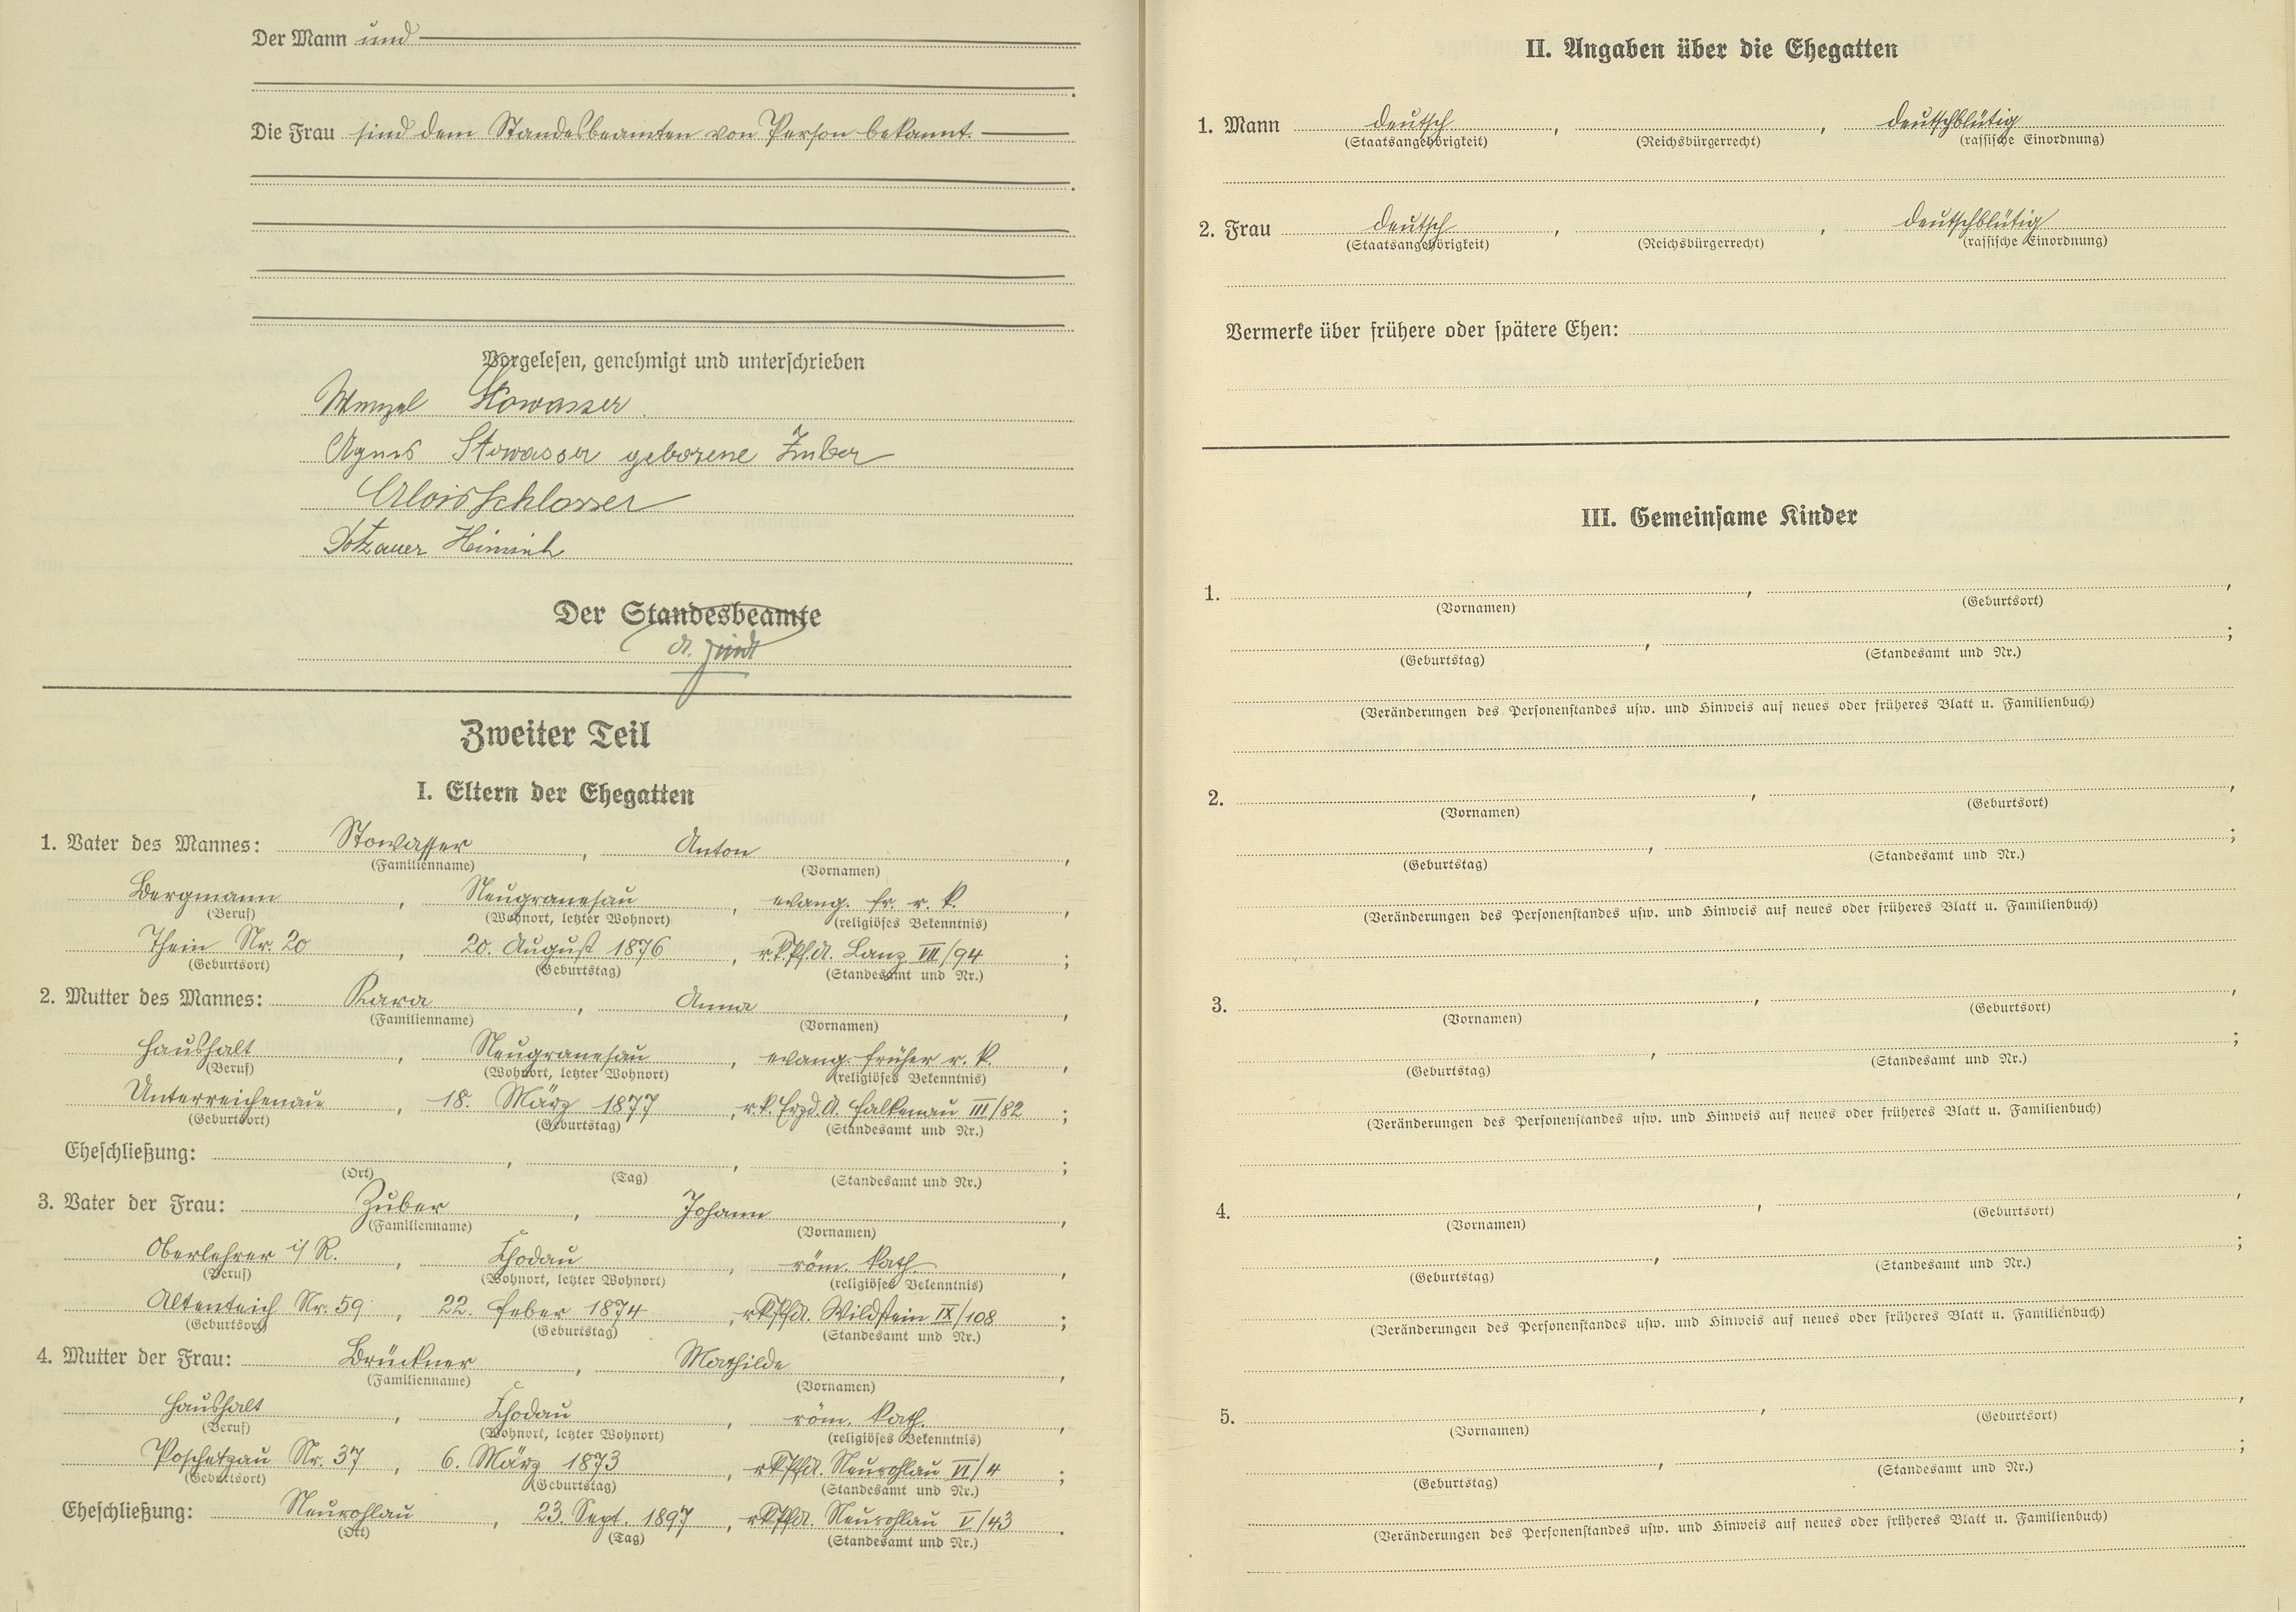 Der Mann und
Die Frau sind dem Standesbeamten von Person bekannt.
Vorgelesen, genehmigt und unterschrieben
Wenzel Stowasser
Agnes Stowasser geborene Zuber
Alois Schlosser
Totzauer Heinrich
Der Standesbeamte
Zweiter Teil
I. Eltern der Ehegatten
1. Vater des Mannes: Stowasser, Anton,
(Familienname) (Vornamen)
Bergmann, Neugranesau, evang. fr. r. k.,
(Beruf) (Wohnort, letzter Wohnort) (religiöses Bekenntnis)
Thein Nr. 20, 20. August 1876, r.k.Pf.A. Lanz VII/94;
(Geburtsort) (Geburtstag) (Standesamt und Nr.)
2. Mutter des Mannes: Kara, Anna,
(Familienname) (Vornamen)
Haushalt, Neugranesau, evang. früher r. k.,
(Beruf) (Wohnort, letzter Wohnort) (religiöses Bekenntnis)
Unterreichenau, 18. März 1877, r.k. Erzd.A. Falkenau III/82;
(Geburtsort) (Geburtstag) (Standesamt und Nr.)
Eheschließung: , , ;
(Ort) (Tag) (Standesamt und Nr.)
3. Vater der Frau: Zuber, Johann,
(Familienname) (Vornamen)
Oberlehrer i/R., Chodau, röm. kath.,
(Beruf) (Wohnort, letzter Wohnort) (religiöses Bekenntnis)
Altenteich Nr. 59, 22. Feber 1874, rkPfA. Wildstein IX/108;
(Geburtsort) (Geburtstag) (Standesamt und Nr.)
4. Mutter der Frau: Brückner, Mathilde,
(Familienname) (Vornamen)
Haushalt, Chodau, röm. kath.,
(Beruf) (Wohnort, letzter Wohnort) (religiöses Bekenntnis)
Poschetzau Nr. 37, 6. März 1873, rkPfA. Neurohlau VI/4;
(Geburtsort) (Geburtstag) (Standesamt und Nr.)
Eheschließung: Neurohlau, 23. Sept. 1897, rkPfA. Neurohlau V/43.
(Ort) (Tag) (Standesamt und Nr.)
II. Angaben über die Ehegatten
1. Mann deutsch, , deutschblütig
(Staatsangehörigkeit) (Reichsbürgerrecht) (rassische Einordnung)
2. Frau deutsch, , deutschblütig
(Staatsangehörigkeit) (Reichsbürgerrecht) (rassische Einordnung)
Vermerke über frühere oder spätere Ehen:
III. Gemeinsame Kinder
1. , ,
(Vornamen) (Geburtsort)
, ;
(Geburtstag) (Standesamt und Nr.)
(Veränderungen des Personenstandes usw. und Hinweis auf neues oder früheres Blatt u. Familienbuch)
2. , ,
(Vornamen) (Geburtsort)
, ;
(Geburtstag) (Standesamt und Nr.)
(Veränderungen des Personenstandes usw. und Hinweis auf neues oder früheres Blatt u. Familienbuch)
3. , ,
(Vornamen) (Geburtsort)
, ;
(Geburtstag) (Standesamt und Nr.)
(Veränderungen des Personenstandes usw. und Hinweis auf neues oder früheres Blatt u. Familienbuch)
4. , ,
(Vornamen) (Geburtsort)
, ;
(Geburtstag) (Standesamt und Nr.)
(Veränderungen des Personenstandes usw. und Hinweis auf neues oder früheres Blatt u. Familienbuch)
5. , ,
(Vornamen) (Geburtsort)
, ;
(Geburtstag) (Standesamt und Nr.)
(Veränderungen des Personenstandes usw. und Hinweis auf neues oder früheres Blatt u. Familienbuch)